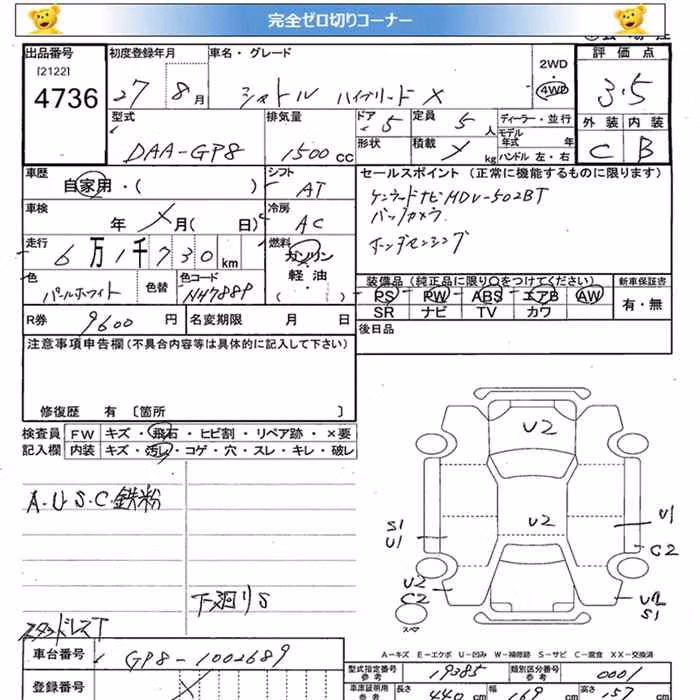 完全ゼロ切りコーナー
出品番号 初度登録年月 車名・グレード 評価点
[2122] 2WD
4736 27 8月 シャトル ハイブリッド X ・4WD 3.5
型式 排気量 ドア 5 定員 5人 ディーラー・並行 外装 内装
モデル年式 年
DAA-GP8 1500cc 形状 積載 kg ハンドル 左・右 C B
車歴 シフト セールスポイント(正常に機能するものに限ります)
自家用・( ) AT ケンウッドナビMDV-502BT
車検 冷房 バックカメラ
年 月( 日) AC ホンダセンシング
走行 燃料
6万1千730km ガソリン
軽油
色 色替 色コード ( ・ ) 装備品(純正品に限り○をつけてください) 新車保証書
パールホワイト NH788P PS PW ABS エアB AW 有・無
SR ナビ TV カワ
R券 9600円 名変期限 月 日 後日品
注意事項申告欄(不具合内容等は具体的に記入して下さい)
修復歴 有 〔箇所 〕
検査員 FW キズ・飛石・ヒビ割・リペア跡・×要
記入欄 内装 キズ・汚れ・コゲ・穴・スレ・キレ・破レ
U2
A・U・S・C・鉄粉
U2
S1 U1
U1 C2
U2
C2
下廻りS
S1
スタッドレスT
スペア
A-キズ E-エクボ U-凹み W-補修跡 S-サビ C-腐食 XX-交換済
車台番号 GP8-1002689
型式指定番号 参考 19385 類別区分番号 参考 0001
登録番号
車庫証明用 参考 長さ 440cm 幅 169cm 高さ 157cm